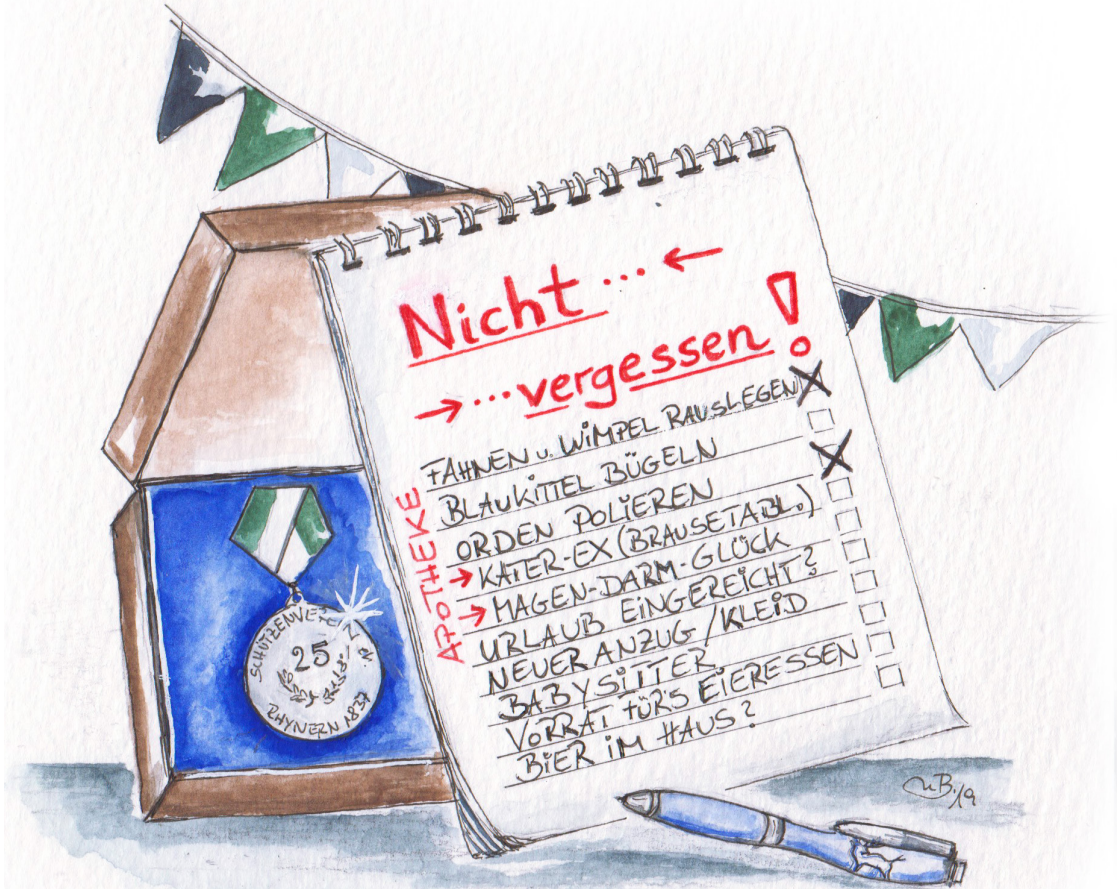 Nicht ... ←
→ ... vergessen!
FAHNEN u. WiMPEL RAUSLEGEN
BLAUKITTEL BÜGELN
ORDEN POLiEREN
→ KATER-EX (BRAUSETABL.)
→ MAGEN-DARM-GLÜCK
URLAUB EiNGEREiCHT?
NEUER ANZUG/KLEiD
BABYSiTTER
VORRAT FÜR'S EiERESSEN
BiER iM HAUS?
APOTHEKE
SCHÜTZENVEREIN e.V.
25
RHYNERN 1837